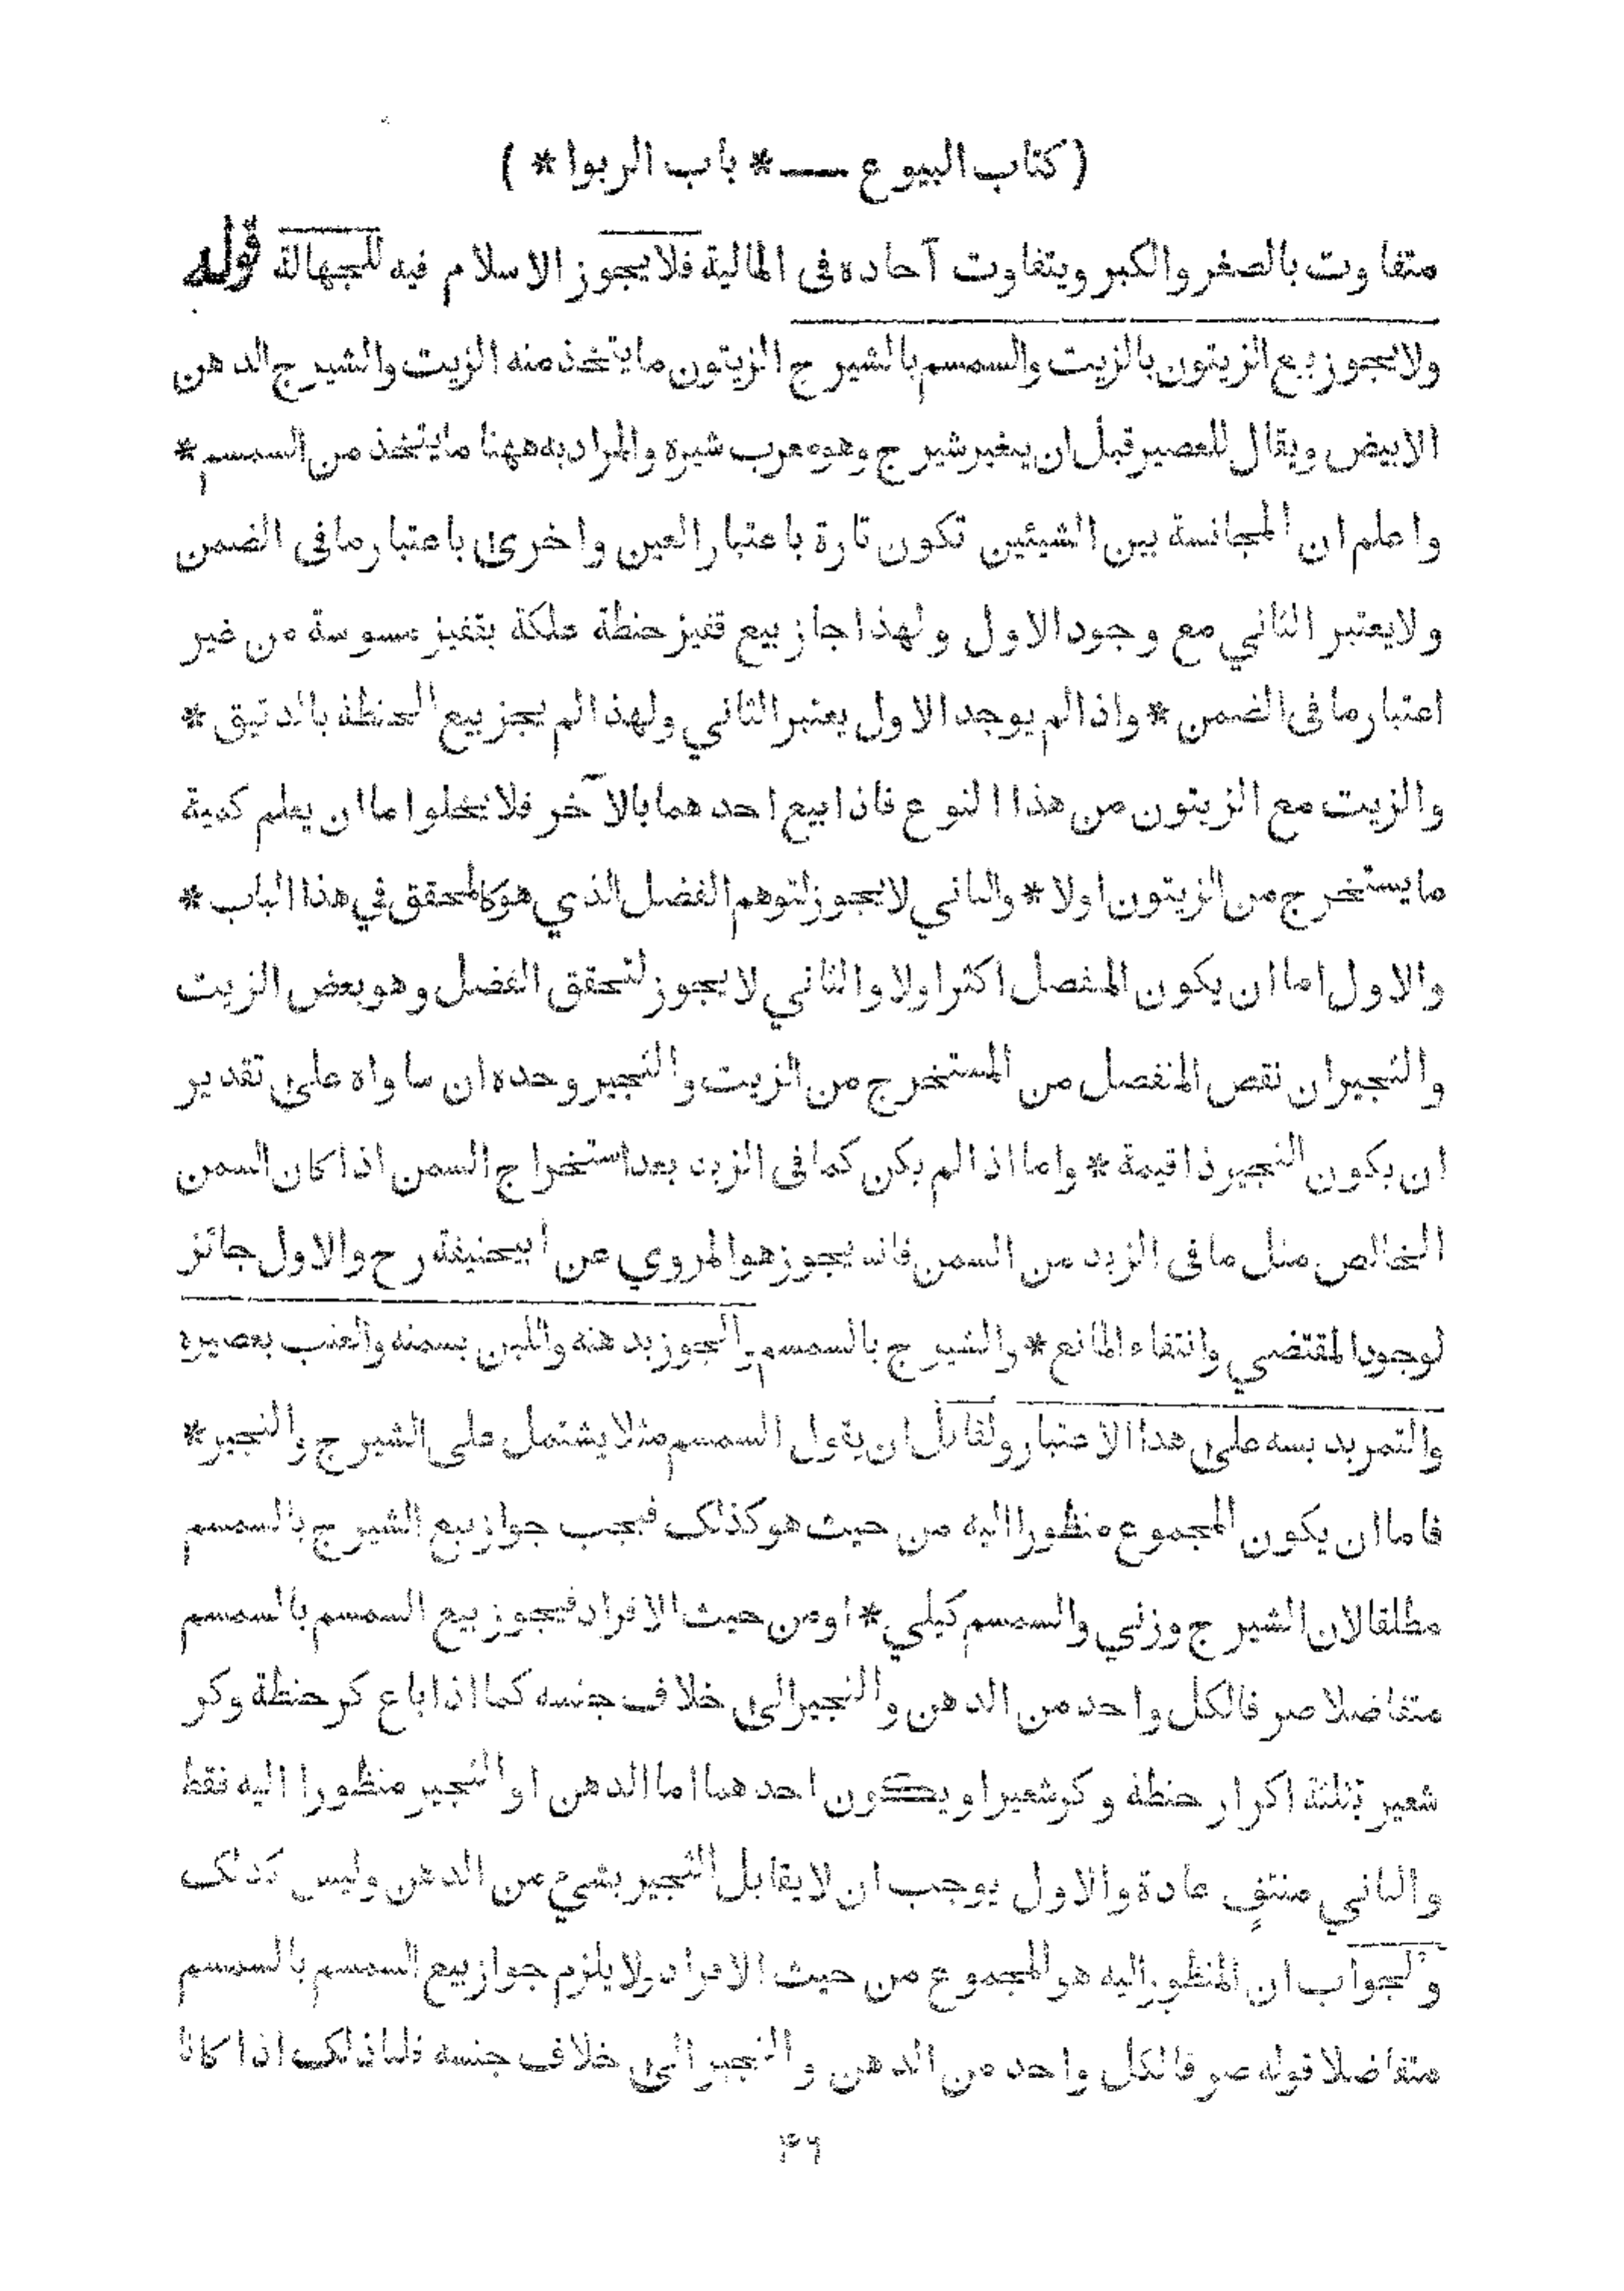 ( كتاب البيوع — * باب الربوا * )
متفاوت بالصغر والكبر ويتفاوت آحاده فى المالية فلا يجوز الاسلام فيه للجهالة قوله
ولا يجوز بيع الزيتون بالزيت والسمسم بالشيرج الزيتون ما يتخذ منه الزيت والشيرج الدهن
الابيض ويقال للعصير قبل ان يتغير شيرج وهو معرب شيره والمراد به ههنا ما يتخذ من السمسم *
واعلم ان المجانسة بين الشيئين تكون تارة باعتبار العين واخرى باعتبار ما فى الضمن
ولا يعتبر الثاني مع وجود الاول ولهذا جاز بيع قفيز حنطة علكة بقفيز مسوسة من غير
اعتبار ما فى الضمن * واذا لم يوجد الاول يعتبر الثاني ولهذا لم يجز بيع الحنطة بالدقيق *
والزيت مع الزيتون من هذا النوع فاذا بيع احدهما بالآخر فلا يخلوا اما ان يعلم كمية
ما يستخرج من الزيتون اولا * والثاني لا يجوز لتوهم الفضل الذي هو كالمحقق في هذا الباب *
والاول اما ان يكون المنفصل اكثر اولا والثاني لا يجوز لتحقق الفضل وهو بعض الزيت
والثجير ان نقص المنفصل من المستخرج من الزيت والثجير وحده ان ساواه على تقدير
ان يكون الثجير ذا قيمة * واما اذا لم يكن كما فى الزبد بعد استخراج السمن اذا كان السمن
الخالص مثل ما فى الزبد من السمن فانه يجوز هو المروي عن ابيحنيفة رح والاول جائز
لوجود المقتضي وانتفاء المانع * والشيرج بالسمسم والجوز بدهنه واللبن بسمنه والعنب بعصيره
والتمر بدبسه على هذا الاعتبار ولقائل ان يقول السمسم مثلا يشتمل على الشيرج والثجير *
فاما ان يكون المجموع منظورا اليه من حيث هو كذلك فيجب جواز بيع الشيرج بالسمسم
مطلقا لان الشيرج وزني والسمسم كيلي * او من حيث الافراد فيجوز بيع السمسم بالسمسم
متفاضلا صرفا لكل واحد من الدهن والثجير الى خلاف جنسه كما اذا باع كر حنطة وكر
شعير بثلثة اكرار حنطة وكر شعير او يكون احدهما اما الدهن او الثجير منظورا اليه فقط
والثاني منتفٍ عادة والاول يوجب ان لا يقابل الثجير بشيء من الدهن وليس كذلك
والجواب ان المنظور اليه هو المجموع من حيث الافراد ولا يلزم جواز بيع السمسم بالسمسم
متفاضلا قوله صرفا لكل واحد من الدهن والثجير الى خلاف جنسه قلنا ذلك اذا كانا
۴۶